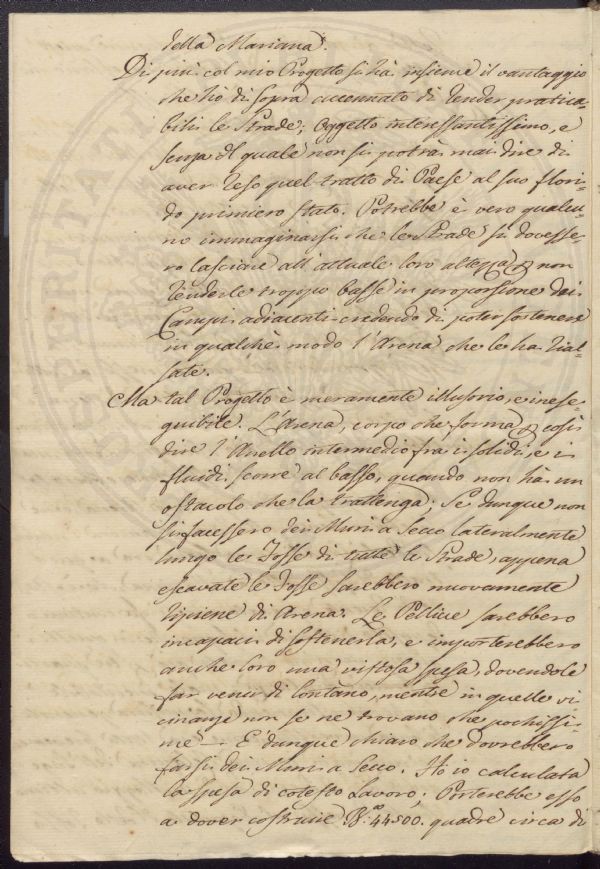 della Mariana.
Di più col mio Progetto si hà insieme il vantaggio
che hò di sopra accennato di render pratica-
bili le Strade; Oggetto interessantissimo, e
senza il quale non si potrà mai dire di
aver reso quel tratto di Paese al suo flori-
do primiero stato. Potrebbe è vero qualcu-
no immaginarsi che le Strade si dovesse-
ro lasciare all'attuale loro altezza per non
renderle troppo basse in proporzione dei
Campi adiacenti credendo di poter sostenere
in qualche modo l'Arena che le ha rial-
sate.
Ma tal Progetto è meramente illusorio, e inese-
guibile. L'Arena, corpo che forma per così
dire l'Anello intermedio fra i solidi, e i
fluidi scorre al basso, quando non hà un
ostacolo che la trattenga; Se dunque non
si facessero dei Muri a Secco lateralmente
lungo le Fosse di tutte le Strade, appena
escavate le Fosse sarebbero nuovamente
ripiene di Arena. Le Pellicce sarebbero
incapaci di sostenerla, e importerebbero
anche loro una vistosa spesa, dovendole
far venir di lontano, mentre in quelle vi-
cinanze non se ne trovano che pochissi-
me — E dunque chiaro che dovrebbero
farsi dei Muri a Secco. Ho io calculata
la spesa di cotesto Lavoro; Porterebbe esso
a dover costruire 44500. quadre circa di